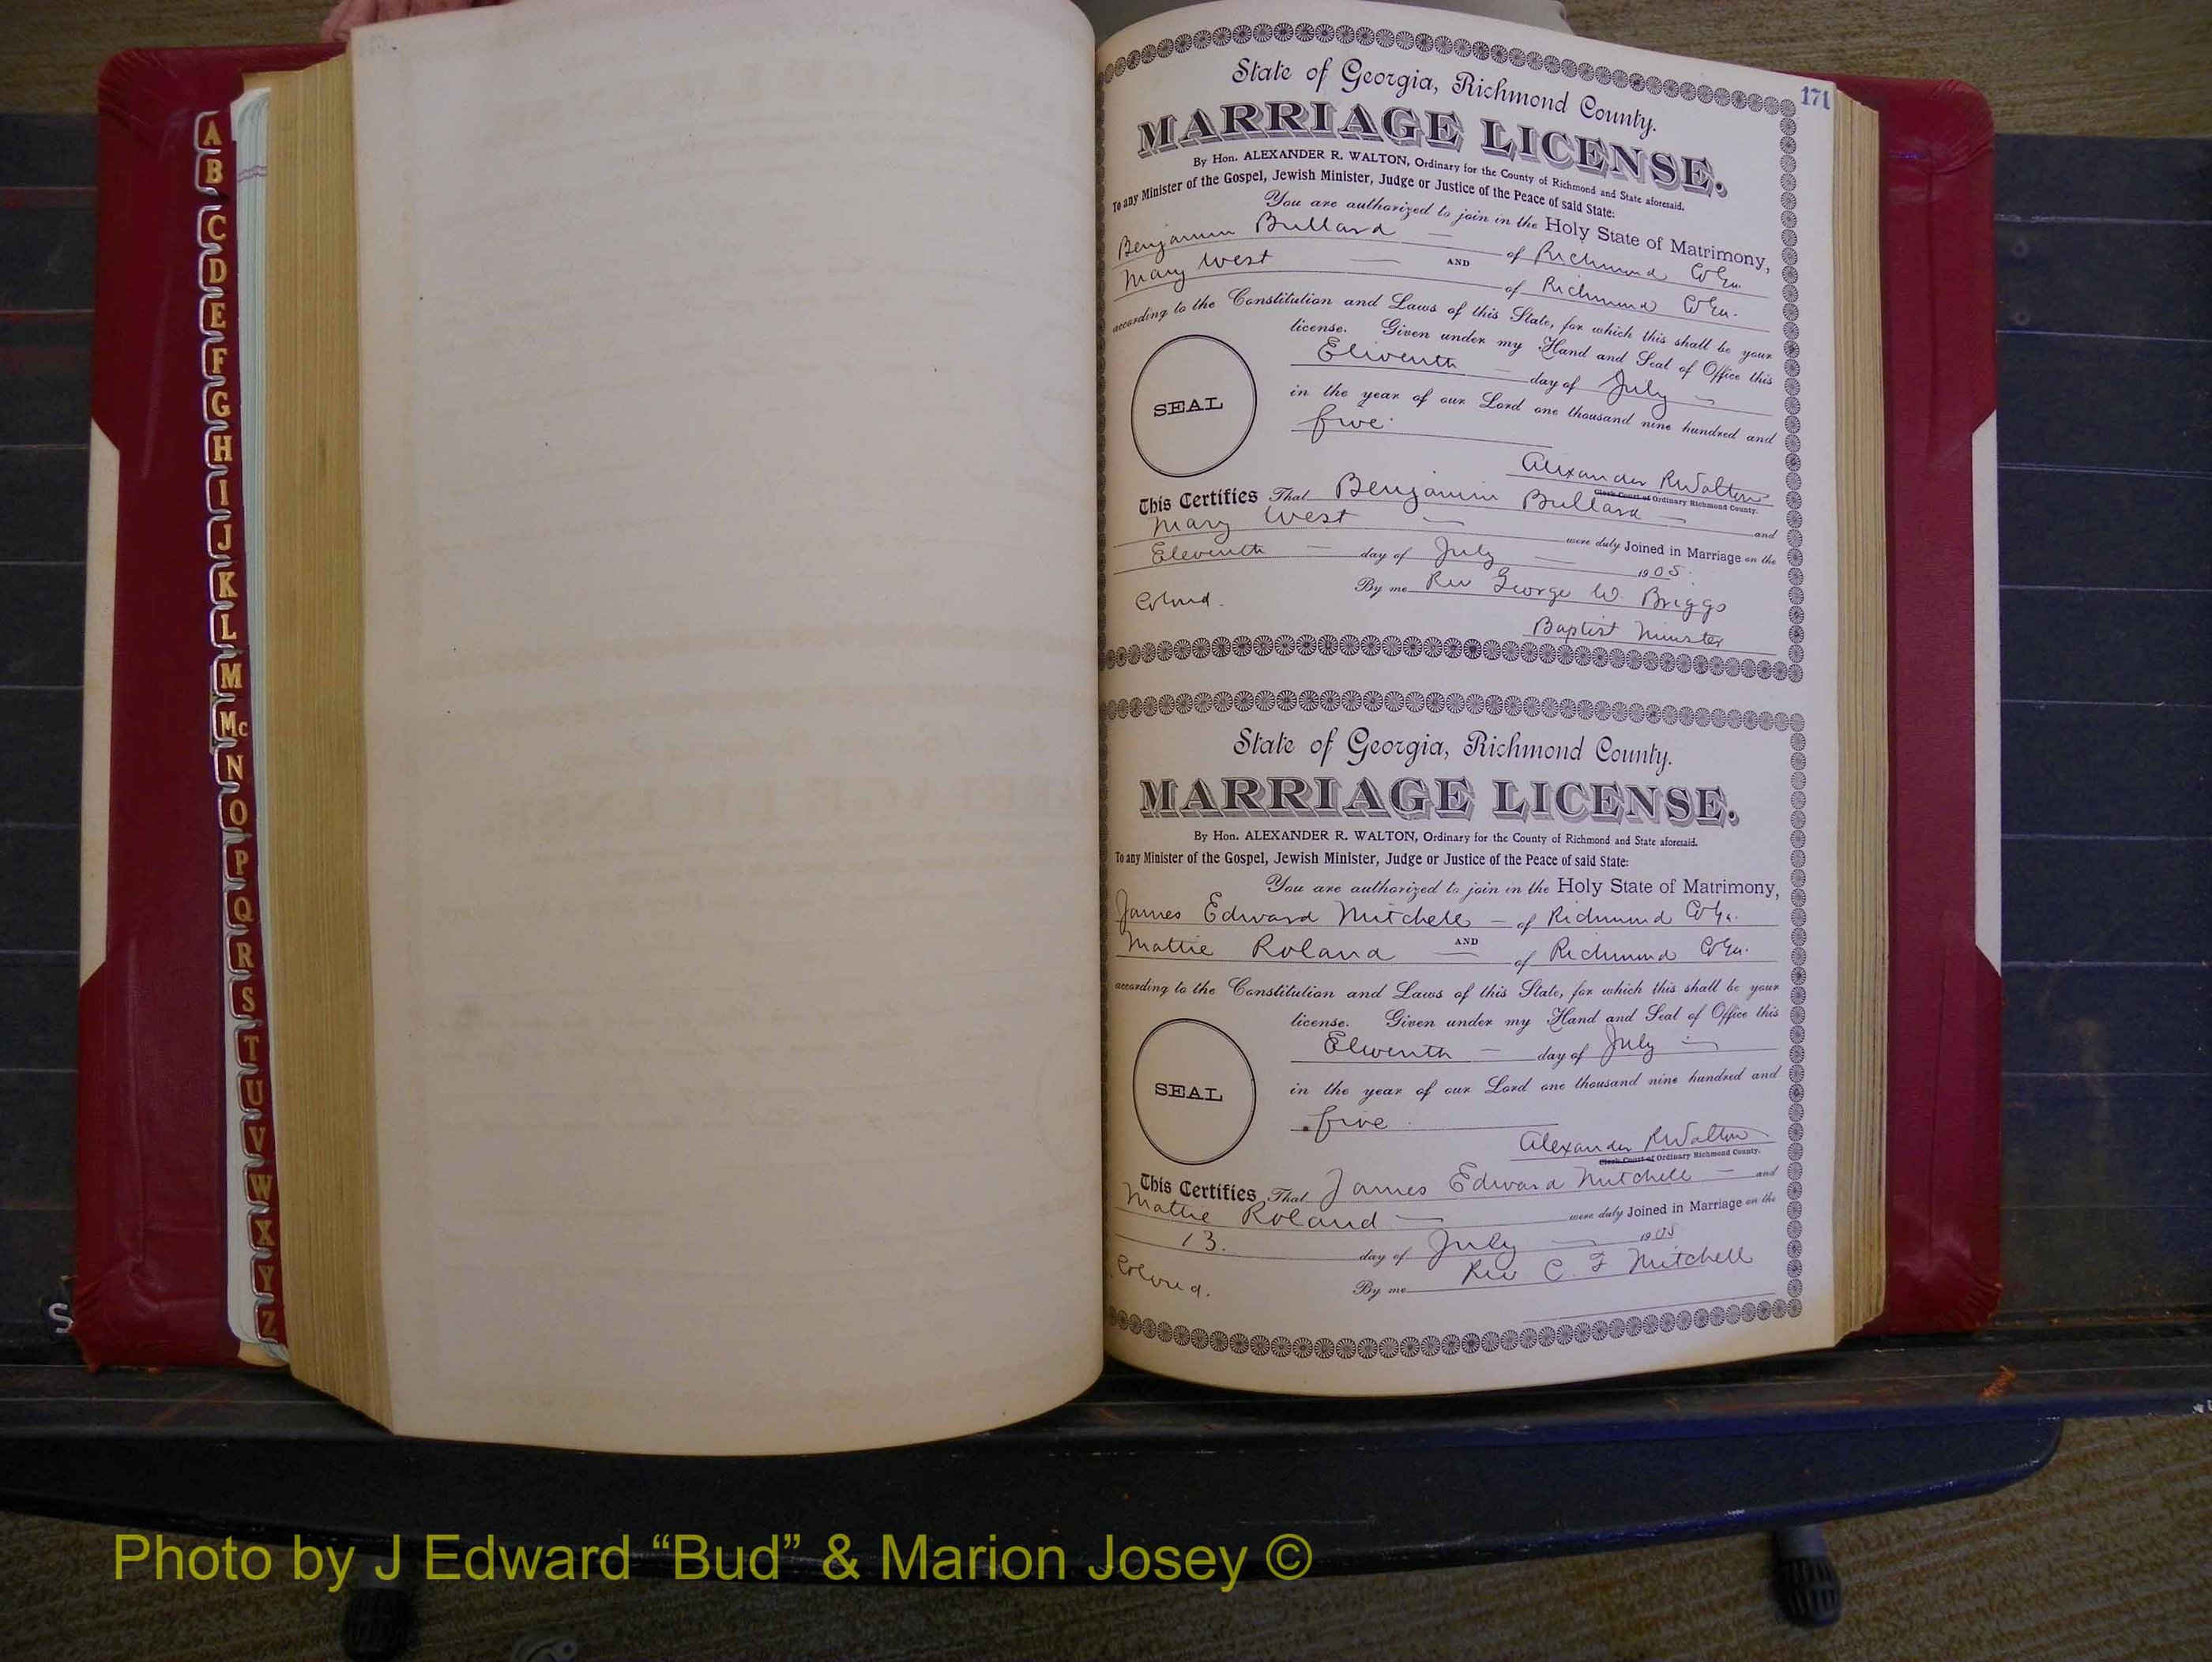 A
B
C
D
E
F
G
H
I
J
K
L
M
Mc
N
O
P
Q
R
S
T
U
V
W
X
Y
Z
171
State of Georgia, Richmond County.
MARRIAGE LICENSE.
By Hon. ALEXANDER R. WALTON, Ordinary for the County of Richmond and State aforesaid.
To any Minister of the Gospel, Jewish Minister, Judge or Justice of the Peace of said State:
You are authorized to join in the Holy State of Matrimony,
Benjamin Bullard — of Richmond Co Ga.
AND
Mary West — of Richmond Co Ga.
according to the Constitution and Laws of this State, for which this shall be your
license. Given under my Hand and Seal of Office this
Eleventh — day of July —
in the year of our Lord one thousand nine hundred and
five.
SEAL
Alexander R Walton
Clerk Court of Ordinary Richmond County.
This Certifies That Benjamin Bullard — and
Mary West — were duly Joined in Marriage on the
Eleventh — day of July — 1905.
By me Rev George W. Briggs
Colored.
Baptist Minister
State of Georgia, Richmond County.
MARRIAGE LICENSE.
By Hon. ALEXANDER R. WALTON, Ordinary for the County of Richmond and State aforesaid.
To any Minister of the Gospel, Jewish Minister, Judge or Justice of the Peace of said State:
You are authorized to join in the Holy State of Matrimony,
James Edward Mitchell — of Richmond Co Ga.
AND
Mattie Roland — of Richmond Co Ga.
according to the Constitution and Laws of this State, for which this shall be your
license. Given under my Hand and Seal of Office this
Eleventh — day of July —
in the year of our Lord one thousand nine hundred and
five
SEAL
Alexander R Walton
Clerk Court of Ordinary Richmond County.
This Certifies That James Edward Mitchell — and
Mattie Roland — were duly Joined in Marriage on the
13. day of July — 1905
By me Rev C. F Mitchell
Colored.
Photo by J Edward “Bud” & Marion Josey ©